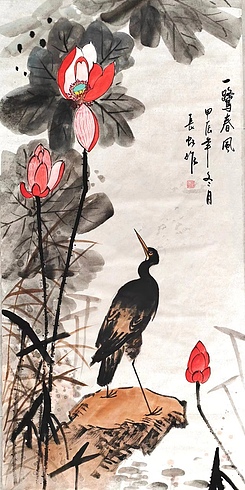 一鹭春风
甲辰年冬月
長虹作